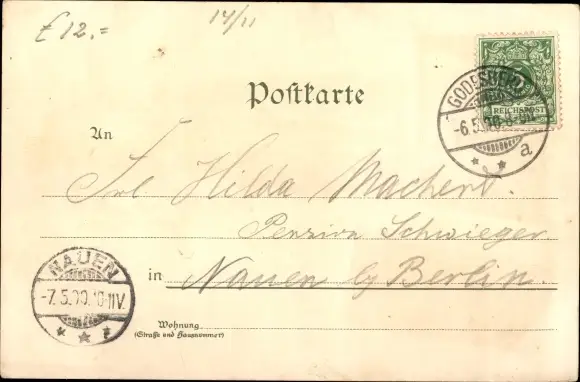 € 12.=
14/11
Postkarte
REICHSPOST
GODESBERG
-6.5.
a
An
Frl. Hilda Machert.
Penzion Schwieger
in Nauen b/Berlin.
NAUEN
-7.5.99.10-11V.
Wohnung
(Straße und Hausnummer)